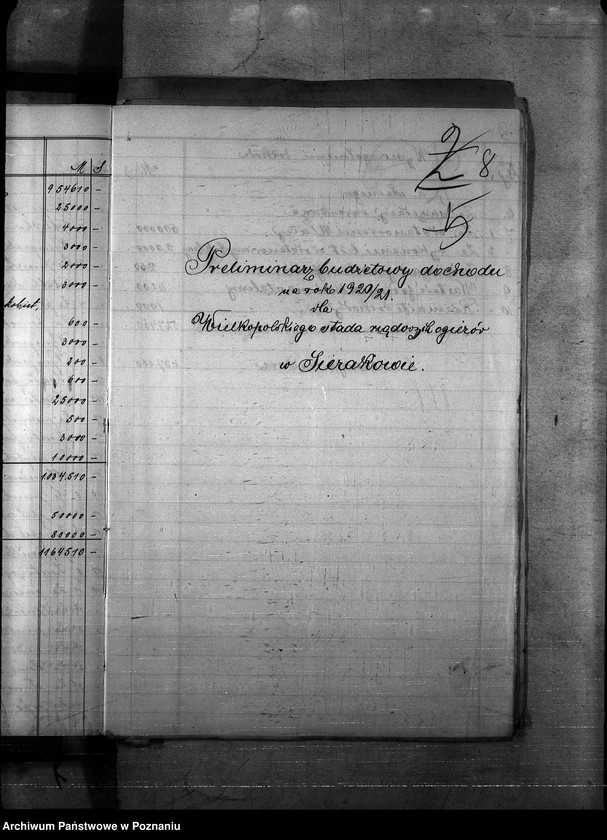 M S
954610 -
25000 -
4000 -
3000 -
2000 -
3000 -
kobiet,
600 -
3000 -
200 -
600 -
25000 -
500 -
3000 -
10000 -
1034510 -
50000 -
80000 -
1164510 -
8
5
Preliminarz budżetowy dochodu
na rok 1920/21.
dla
Wielkopolskiego stada rządowych ogierów
w Sierakowie.
Archiwum Państwowe w Poznaniu